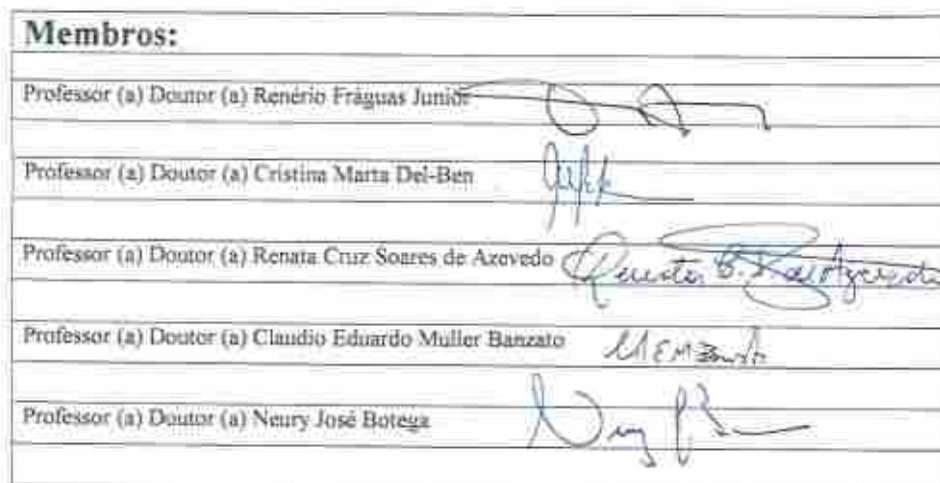 Membros:
Professor (a) Doutor (a) Renério Fráguas Junior
Professor (a) Doutor (a) Cristina Marta Del-Ben
Professor (a) Doutor (a) Renata Cruz Soares de Azevedo
Professor (a) Doutor (a) Claudio Eduardo Muller Banzato
Professor (a) Doutor (a) Neury José Botega